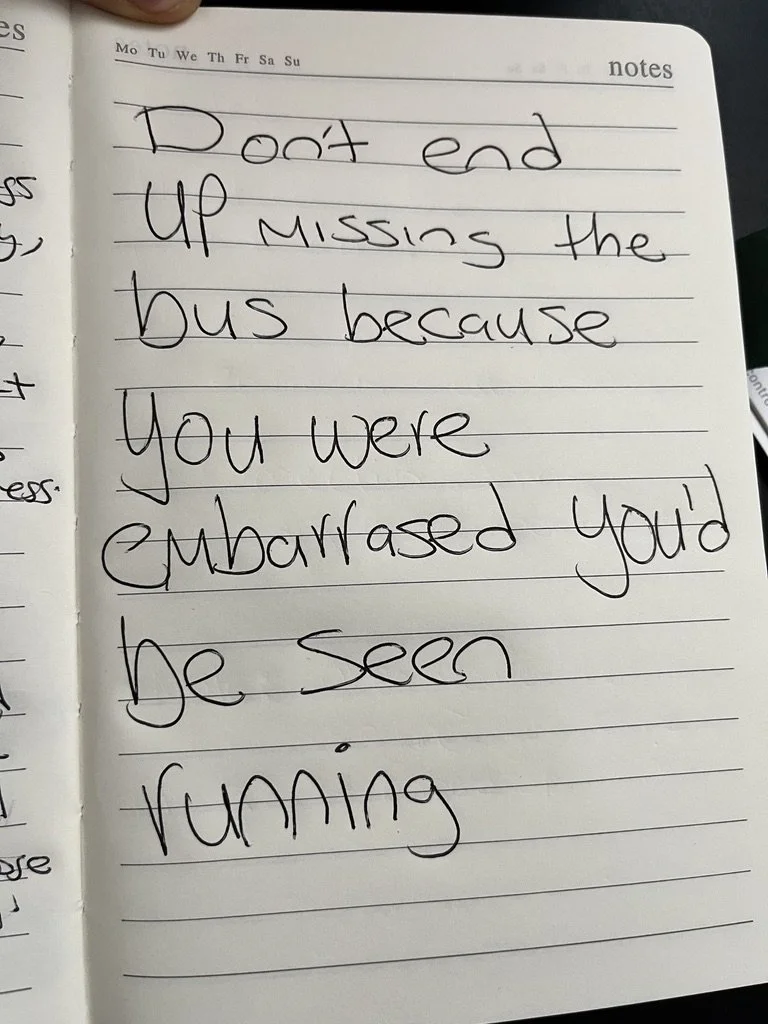 es
Mo Tu We Th Fr Sa Su
notes
Don't end
up missing the
bus because
you were
embarrased you'd
be seen
running
ess.